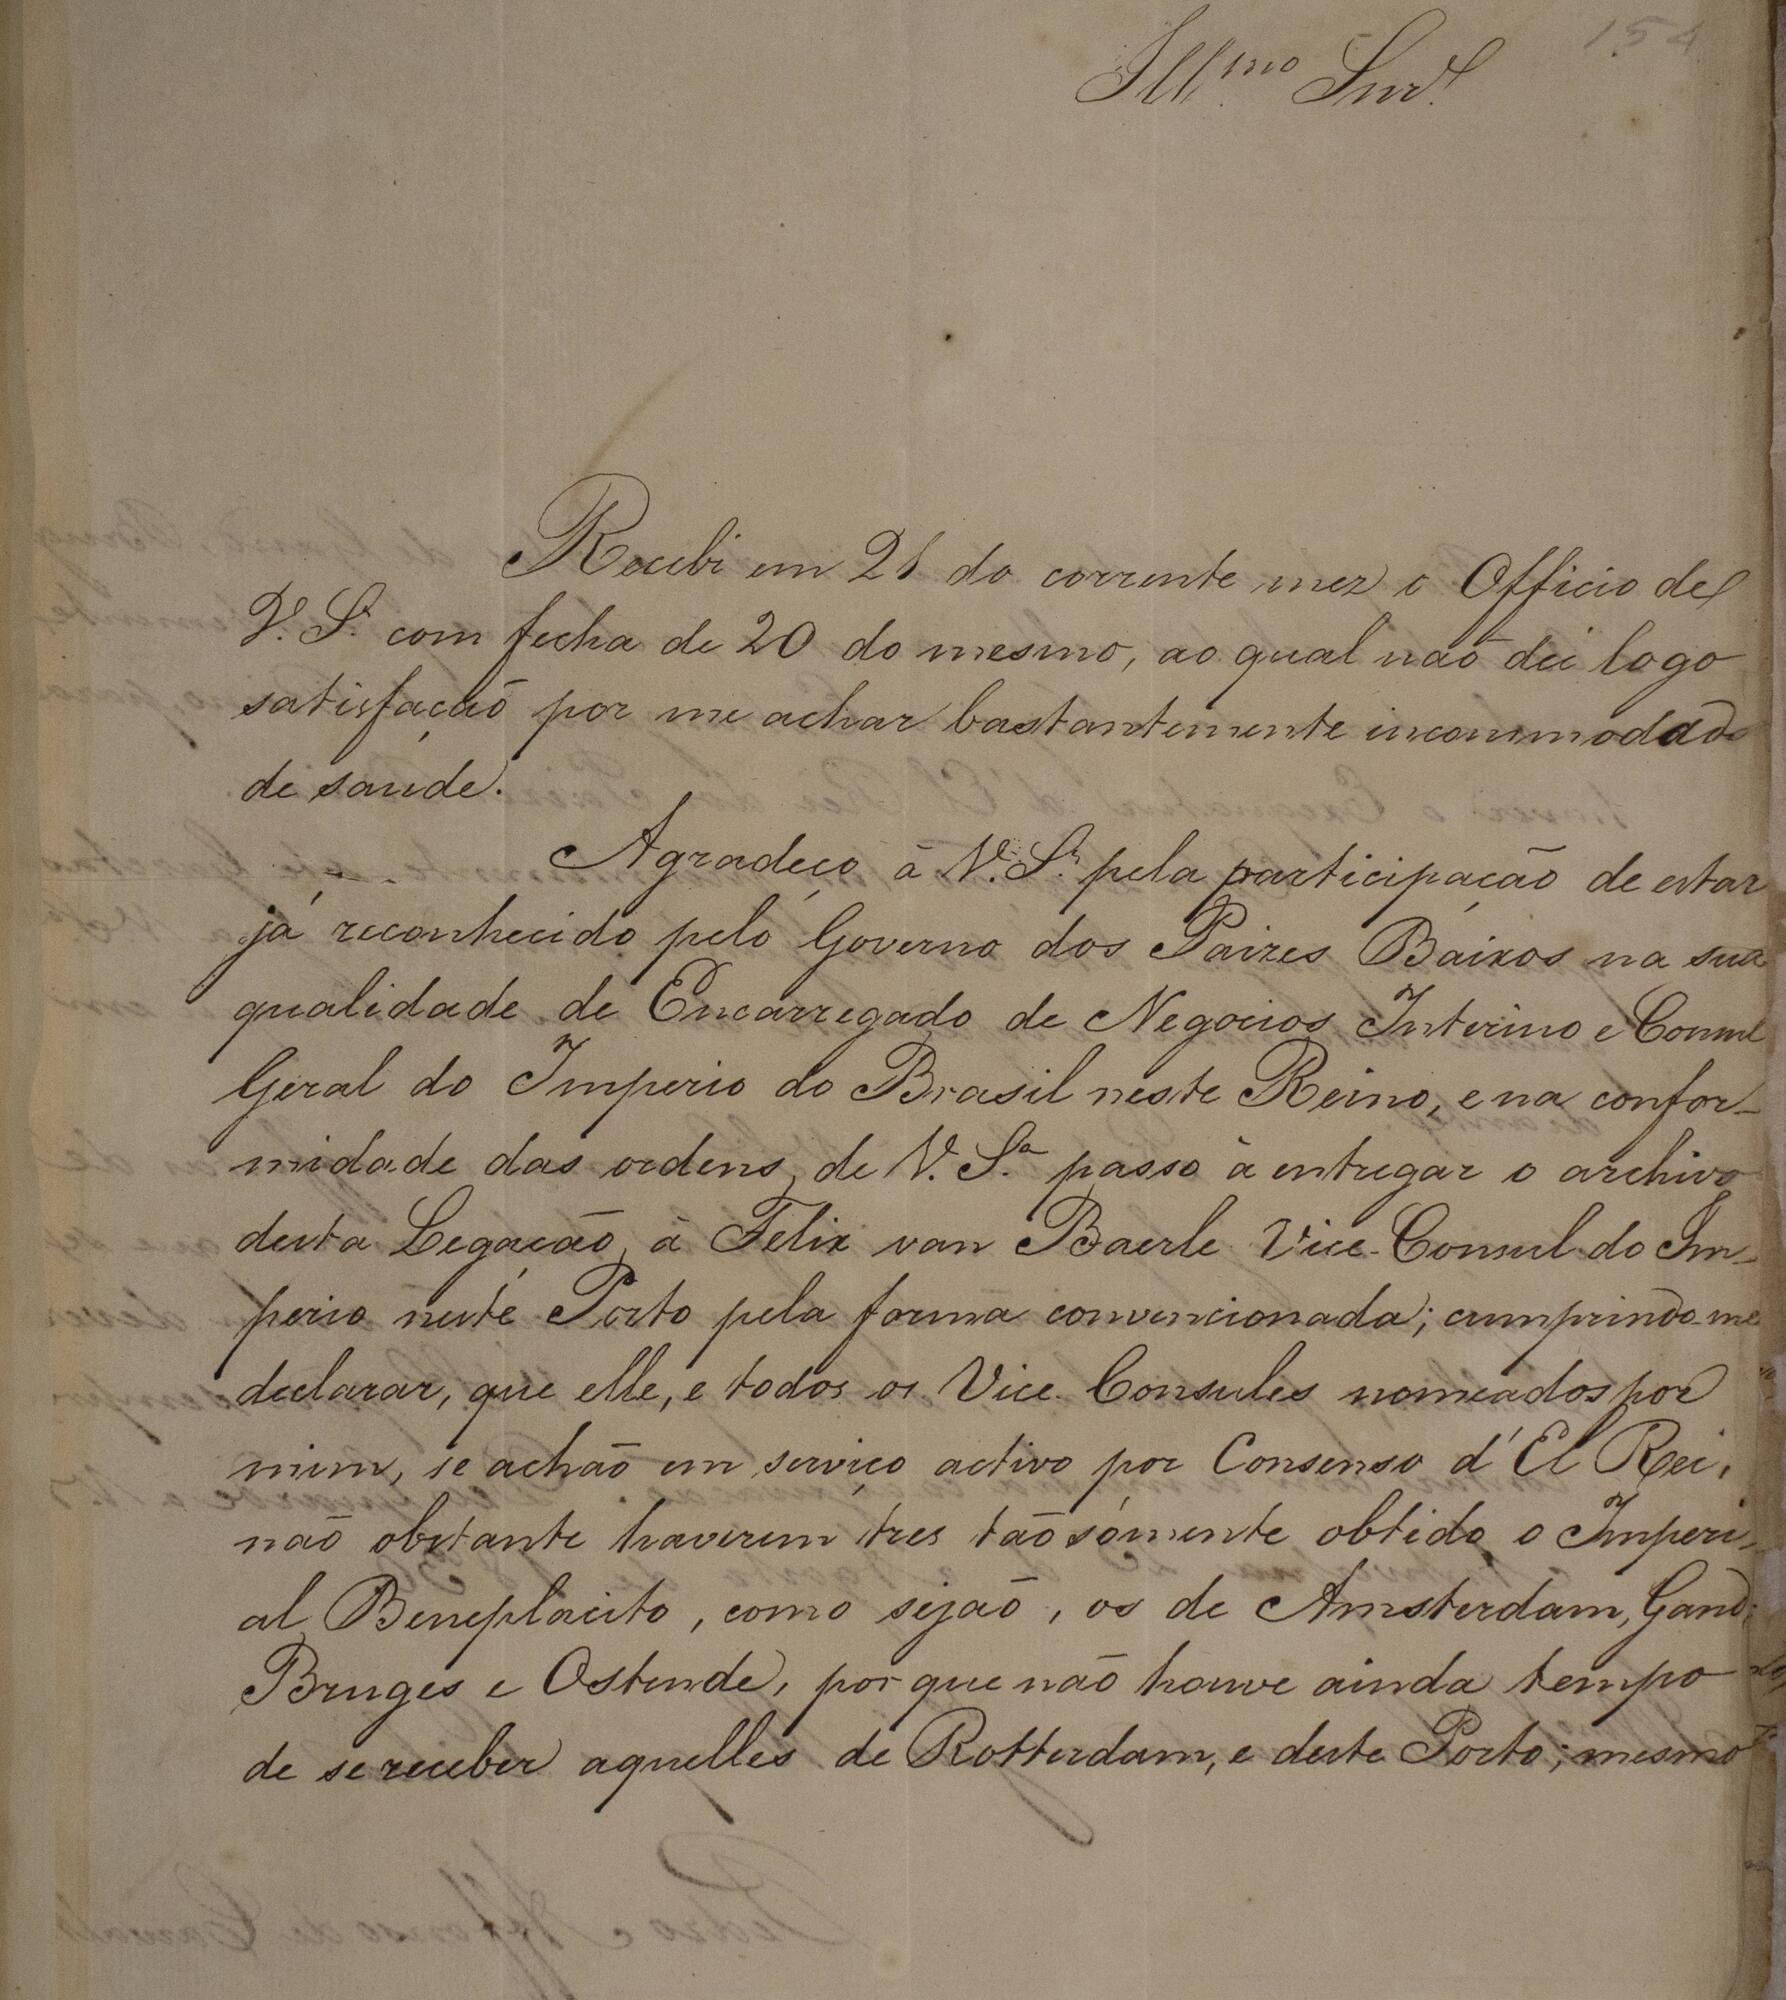 154
Ill.mo Snr.
Recebi em 21 do corrente mez o Officio de
V. Sª com fecha de 20 do mesmo, ao qual não dei logo
satisfação por me achar bastantemente incommodado
de saude.
Agradeço à V. Sª pela participação de estar
já reconhecido pelo Governo dos Paizes Baixos na sua
qualidade de Encarregado de Negocios Interino e Consul
Geral do Imperio do Brasil neste Reino, e na confor-
midade das ordens de V. Sª passo à entregar o archivo
desta Legação, à Felix van Baerle Vice-Consul do Im-
perio neste Porto pela forma convencionada; cumprindo-me
declarar, que elle, e todos os Vice Consules nomeados por
mim, se achão em serviço activo por Consenso d'El Rei,
não obstante haverem tres tão sómente obtido o Imperi-
al Beneplacito, como sejão, os de Amsterdam, Gand,
Bruges e Ostende, por que não houve ainda tempo
de se receber aquelles de Rotterdam, e deste Porto; mesmo